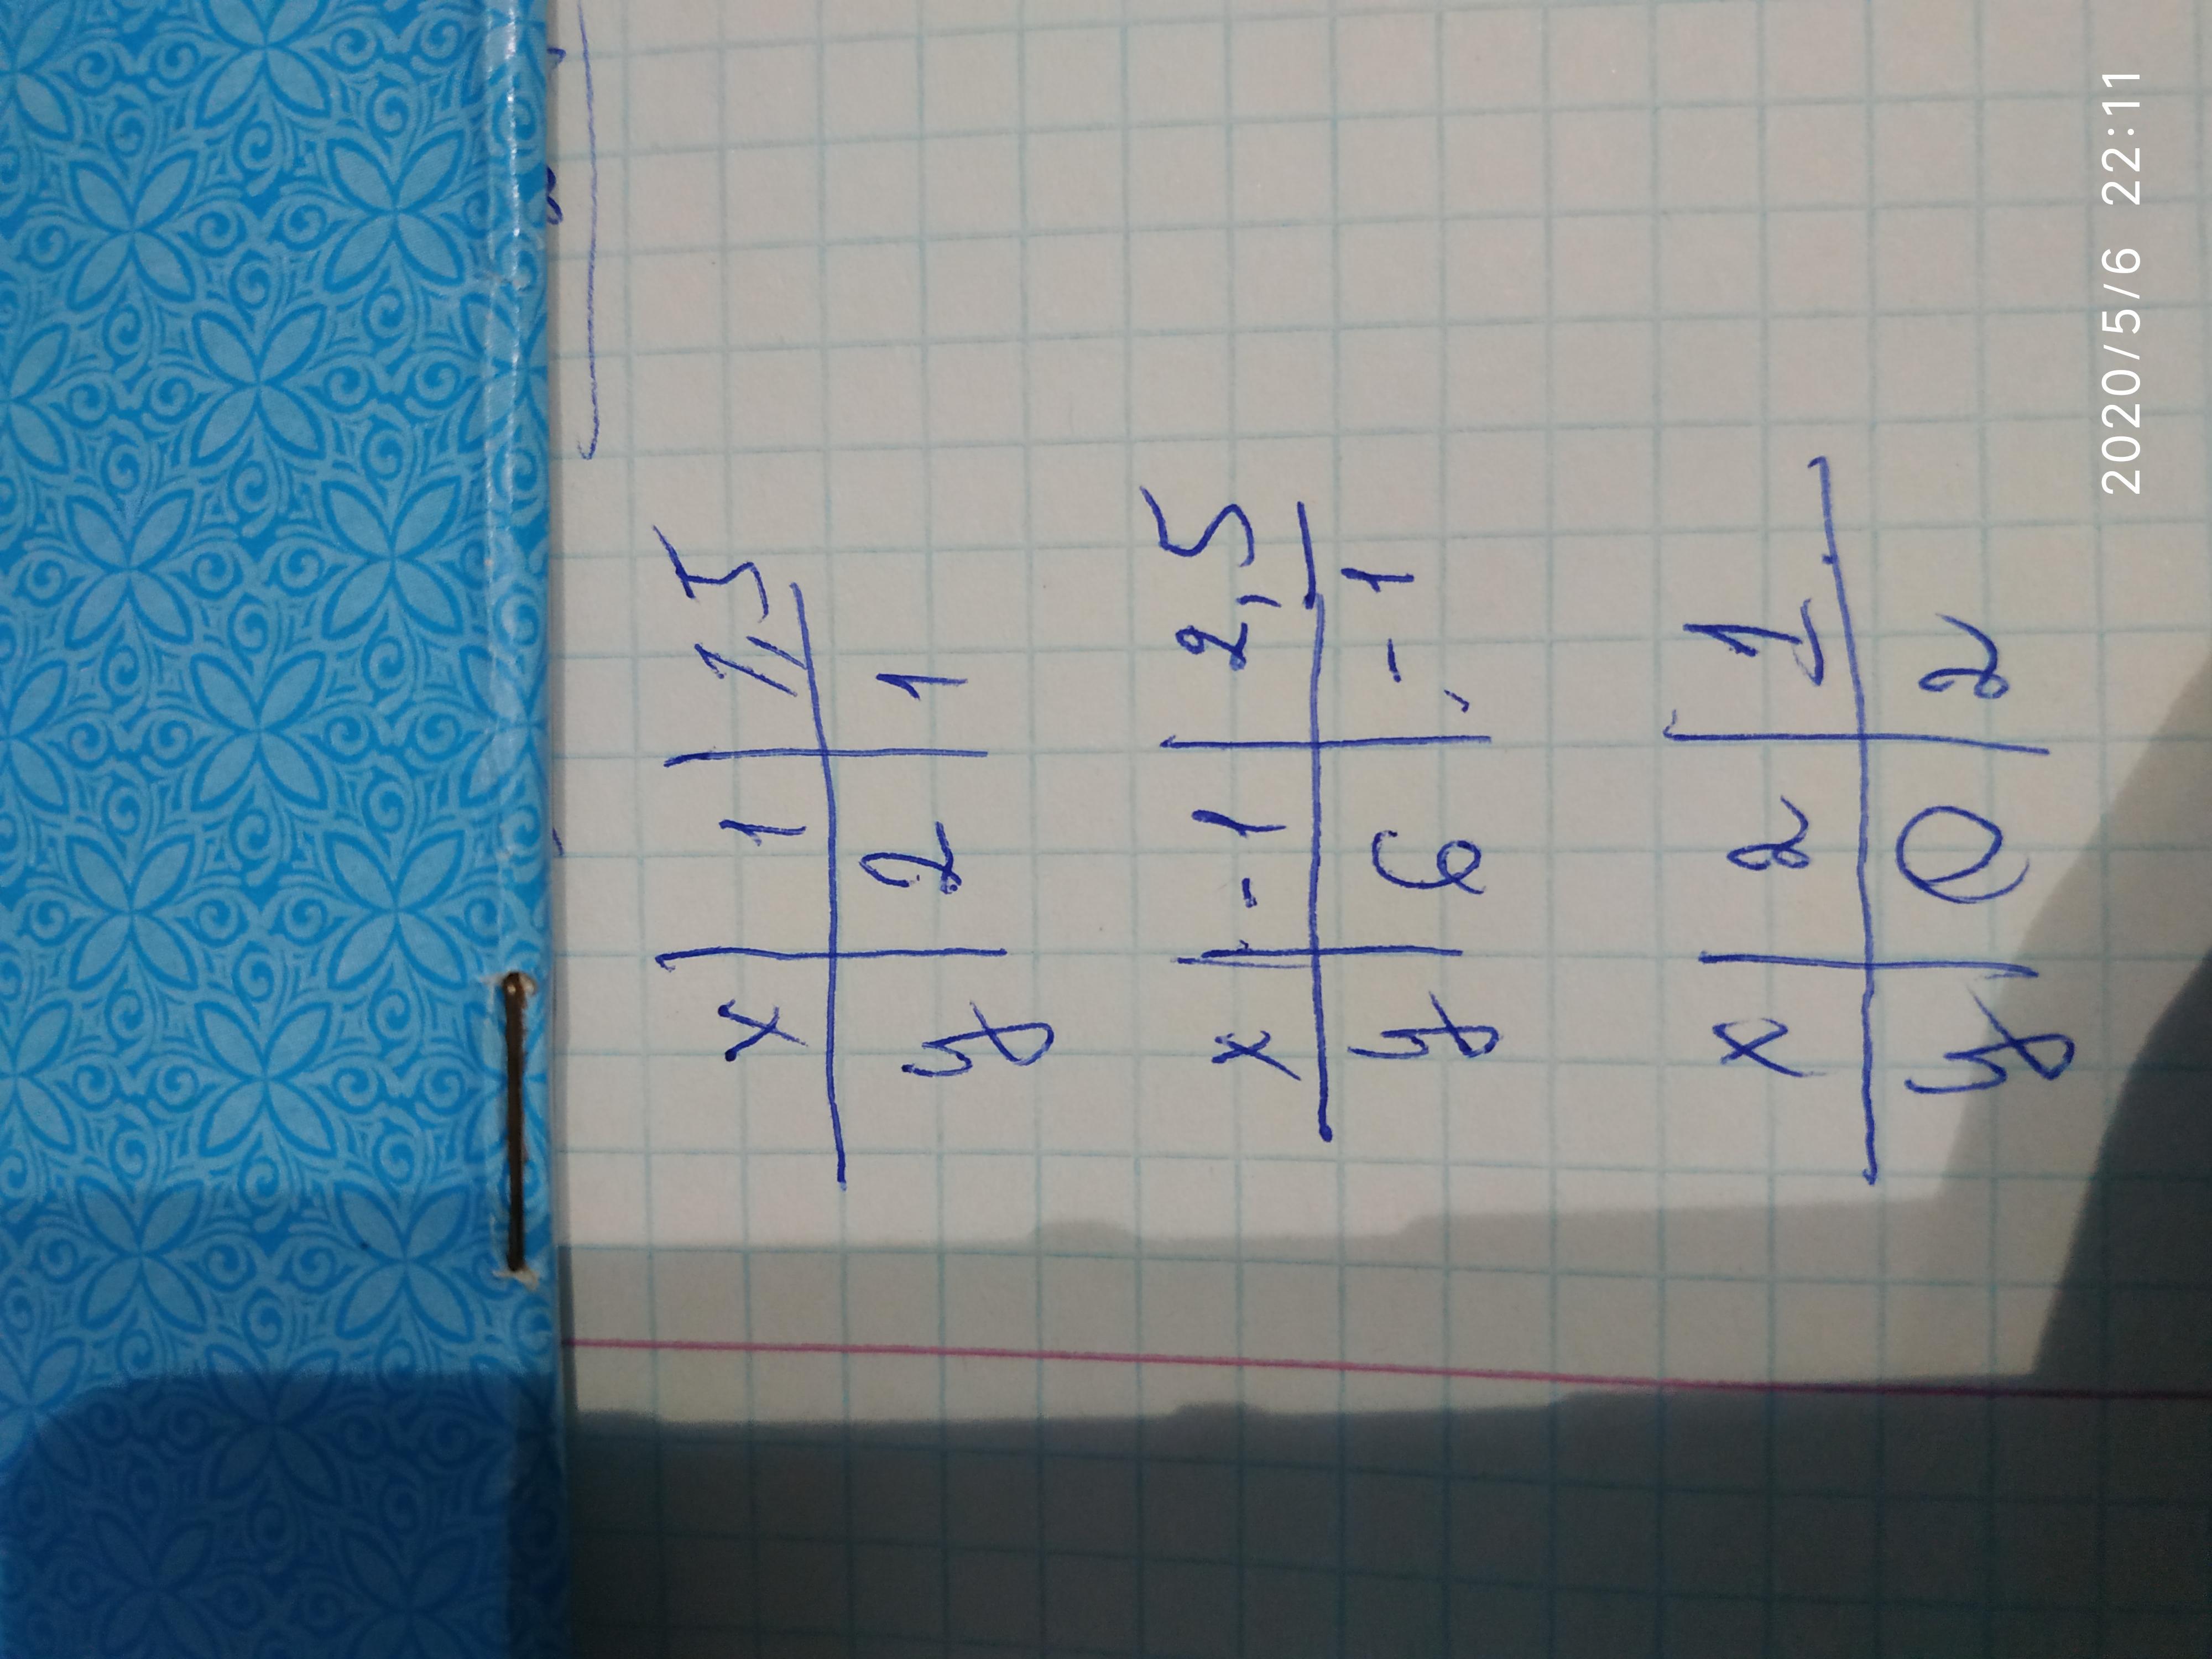 x | 1 | 1,5
y | 2 | 1
x | -1 | 2,5
y | 6 | -1
x | 2 | 1
y | 0 | 2
2020/5/6 22:11